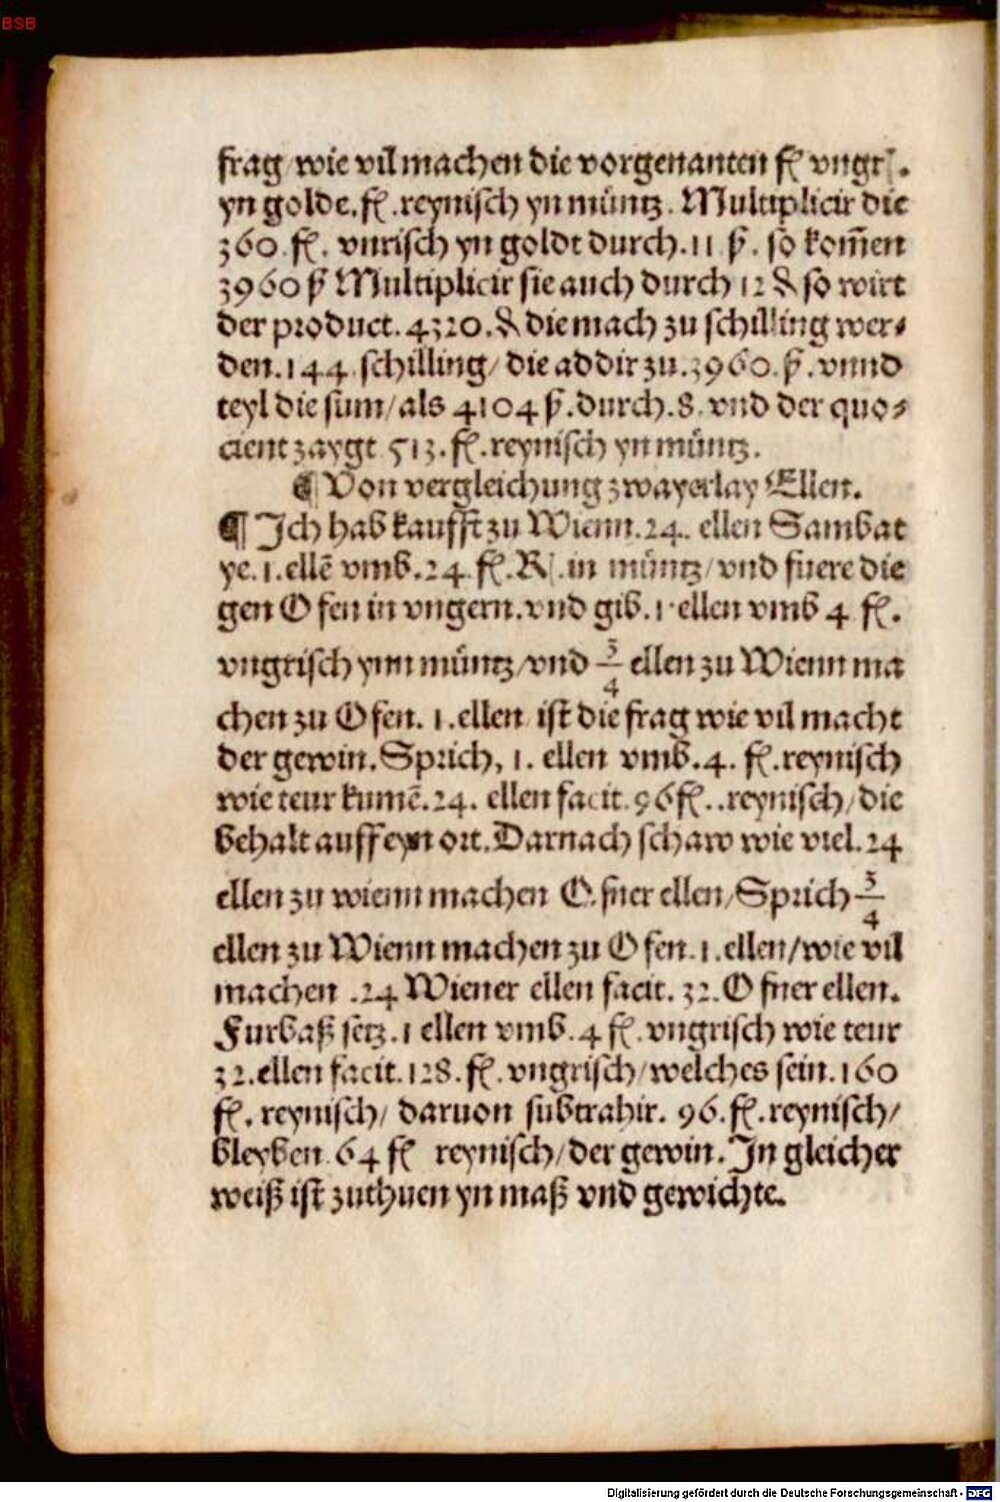 BSB
frag/wie vil machen die vorgenanten fl vngr.
yn golde.fl.reynisch yn müntz. Multiplicir die
360.fl. vnrisch yn goldt durch.11 ꝑ̃. so kom̃en
3960 ß Multiplicir sie auch durch 12 ₰ so wirt
der product.4320.₰ die mach zu schilling wer⸗
den.144 schilling/ die addir zu.3960.ß.vnnd
teyl die sum/als 4104 ß.durch.8.vnd der quo⸗
cient zaygt 513.fl.reynisch yn müntz.
¶ Von vergleichung zwayerlay Ellen.
¶ Ich hab kaufft zu Wienn.24. ellen Sambat
ye.1.ellẽ vmb.24 fl.R.in müntz/vnd fuere die
gen Ofen in vngern.vnd gib.1.ellen vmb 4 fl.
vngrisch ynn müntz/vnd 3/4 ellen zu Wienn ma
chen zu Ofen. 1.ellen/ist die frag wie vil macht
der gewin.Sprich, 1. ellen vmb.4. fl.reynisch
wie teur kumẽ.24. ellen facit.96fl..reynisch/die
behalt auff eyn ort.Darnach schaw wie viel.24
ellen zu wienn machen Ofner ellen/Sprich 3/4
ellen zu Wienn machen zu Ofen.1.ellen/wie vil
machen .24 Wiener ellen facit. 32.Ofner ellen.
Furbaß setz.1 ellen vmb.4 fl.vngrisch wie teur
32.ellen facit.128.fl.vngrisch/welches sein.160
fl.reynisch/ daruon subtrahir. 96.fl.reynisch/
bleyben.64 fl reynisch/der gewin.In gleicher
weiß ist zuthuen yn maß vnd gewichte.
Digitalisierung gefördert durch die Deutsche Forschungsgemeinschaft - DFG